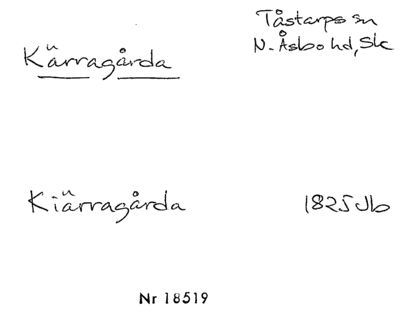 Tåstarps sn
Kärragårda
N. Åsbo hd, Sk
Kiärragårda
1825 Jb
Nr 18519